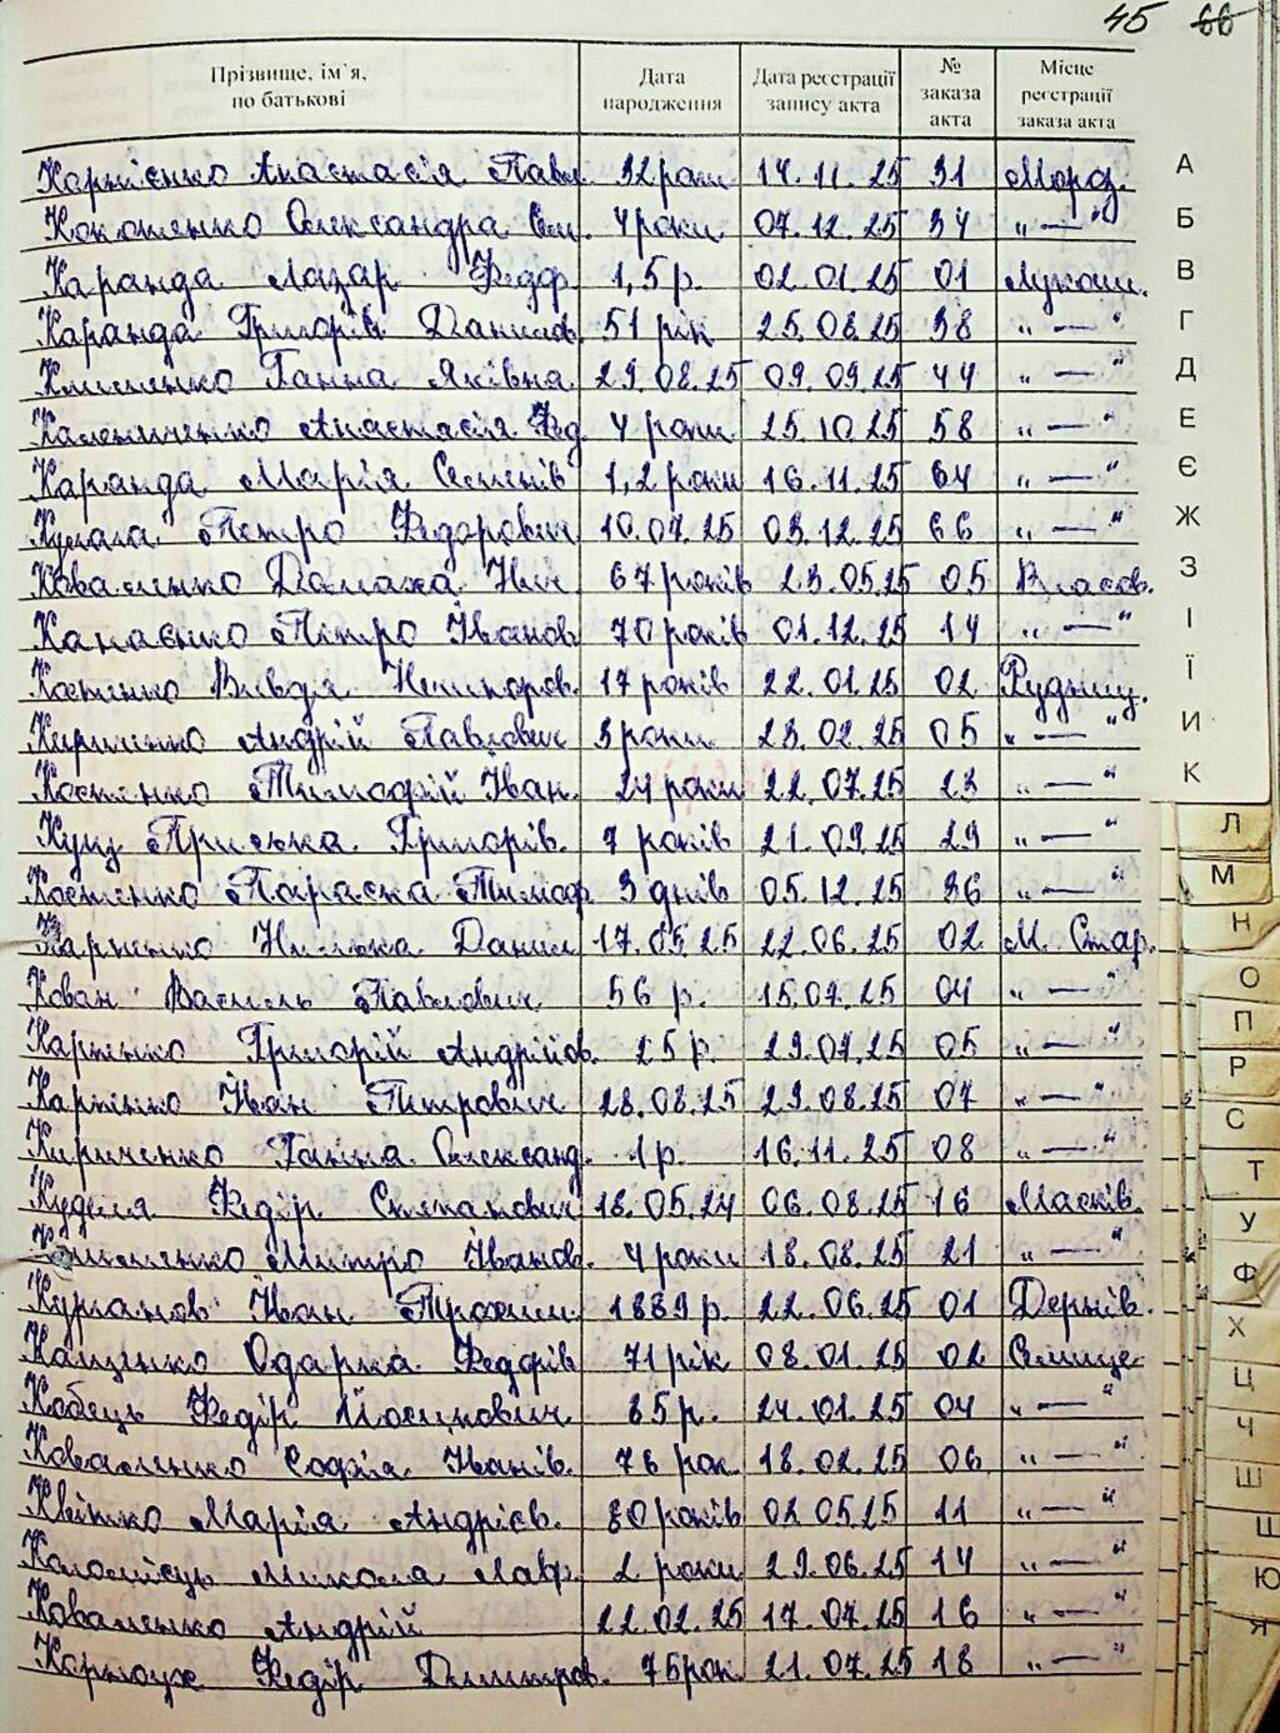 45 66
Прізвище, ім`я, по батькові Дата народження Дата реєстрації запису акта № заказа акта Місце реєстрації заказа акта
Карнієнко Анастасія Павл. 32 роки 14.11.25 31 Мороз.
Олександра Ем. 4 роки 07.12.25 34 „—"
Каранда Лазар Федф. 1,5 р. 02.01.25 01 Лукаш.
Каранда Григорій Данилов. 51 рік 25.08.25 38 „—"
Клименко Ганна Яківна 29.08.25 09.09.25 44 „—"
Анастасія Фед. 4 роки 25.10.25 58 „—"
Каранда Марія Семенів 1,2 роки 16.11.25 64 „—"
Кулага Петро Федорович 10.07.25 03.12.25 66 „—"
Коваленко Домаха Нич. 67 років 23.05.25 05 Власов.
Петро Іванов 70 років 01.12.25 14 „—"
Костенко Вивдя Никифоров. 17 років 22.01.25 02 Рудниц.
Кириченко Андрій Павлович 3 роки 23.02.25 05 „—"
Костенко Тимофій Іван. 24 роки 22.07.25 23 „—"
Куц Приська Григорів. 7 років 21.09.25 29 „—"
Костенко Параска Тимоф. 3 днів 05.12.25 36 „—"
Карпенко Данил 17.05.25 22.06.25 02 М. Стар.
Кован Василь Павлович 56 р. 15.07.25 04 „—"
Карпенко Григорій Андрійов. 25 р. 29.07.25 05 „—"
Карпенко Іван Петрович 28.08.25 29.08.25 07 „—"
Кириченко Ганна Олександ. 1 р. 16.11.25 08 „—"
Куделя Федір Степанович 18.05.24 06.08.25 16 Масків.
Митро Іванов. 4 роки 18.08.25 21 „—"
Курганов Іван Трохим. 1889 р. 22.06.25 01 Дернів.
Кащенко Одарка Федорів 71 рік 08.01.25 02 Селище
Кобець Федір Йосипович 85 р. 24.01.25 04 „—"
Коваленко Софія Іванів. 76 рок. 18.02.25 06 „—"
Квітко Марія Андрієв. 80 років 02.05.25 11 „—"
Коломієць Микола Лавр. 2 роки 29.06.25 14 „—"
Коваленко Андрій 22.02.25 17.07.25 16 „—"
Карнаух Федір Дмитров. 75 рок. 21.07.25 18 „—"
А
Б
В
Г
Д
Е
Є
Ж
З
І
Ї
И
К
Л
М
Н
О
П
Р
С
Т
У
Ф
Х
Ц
Ч
Ш
Щ
Ю
Я